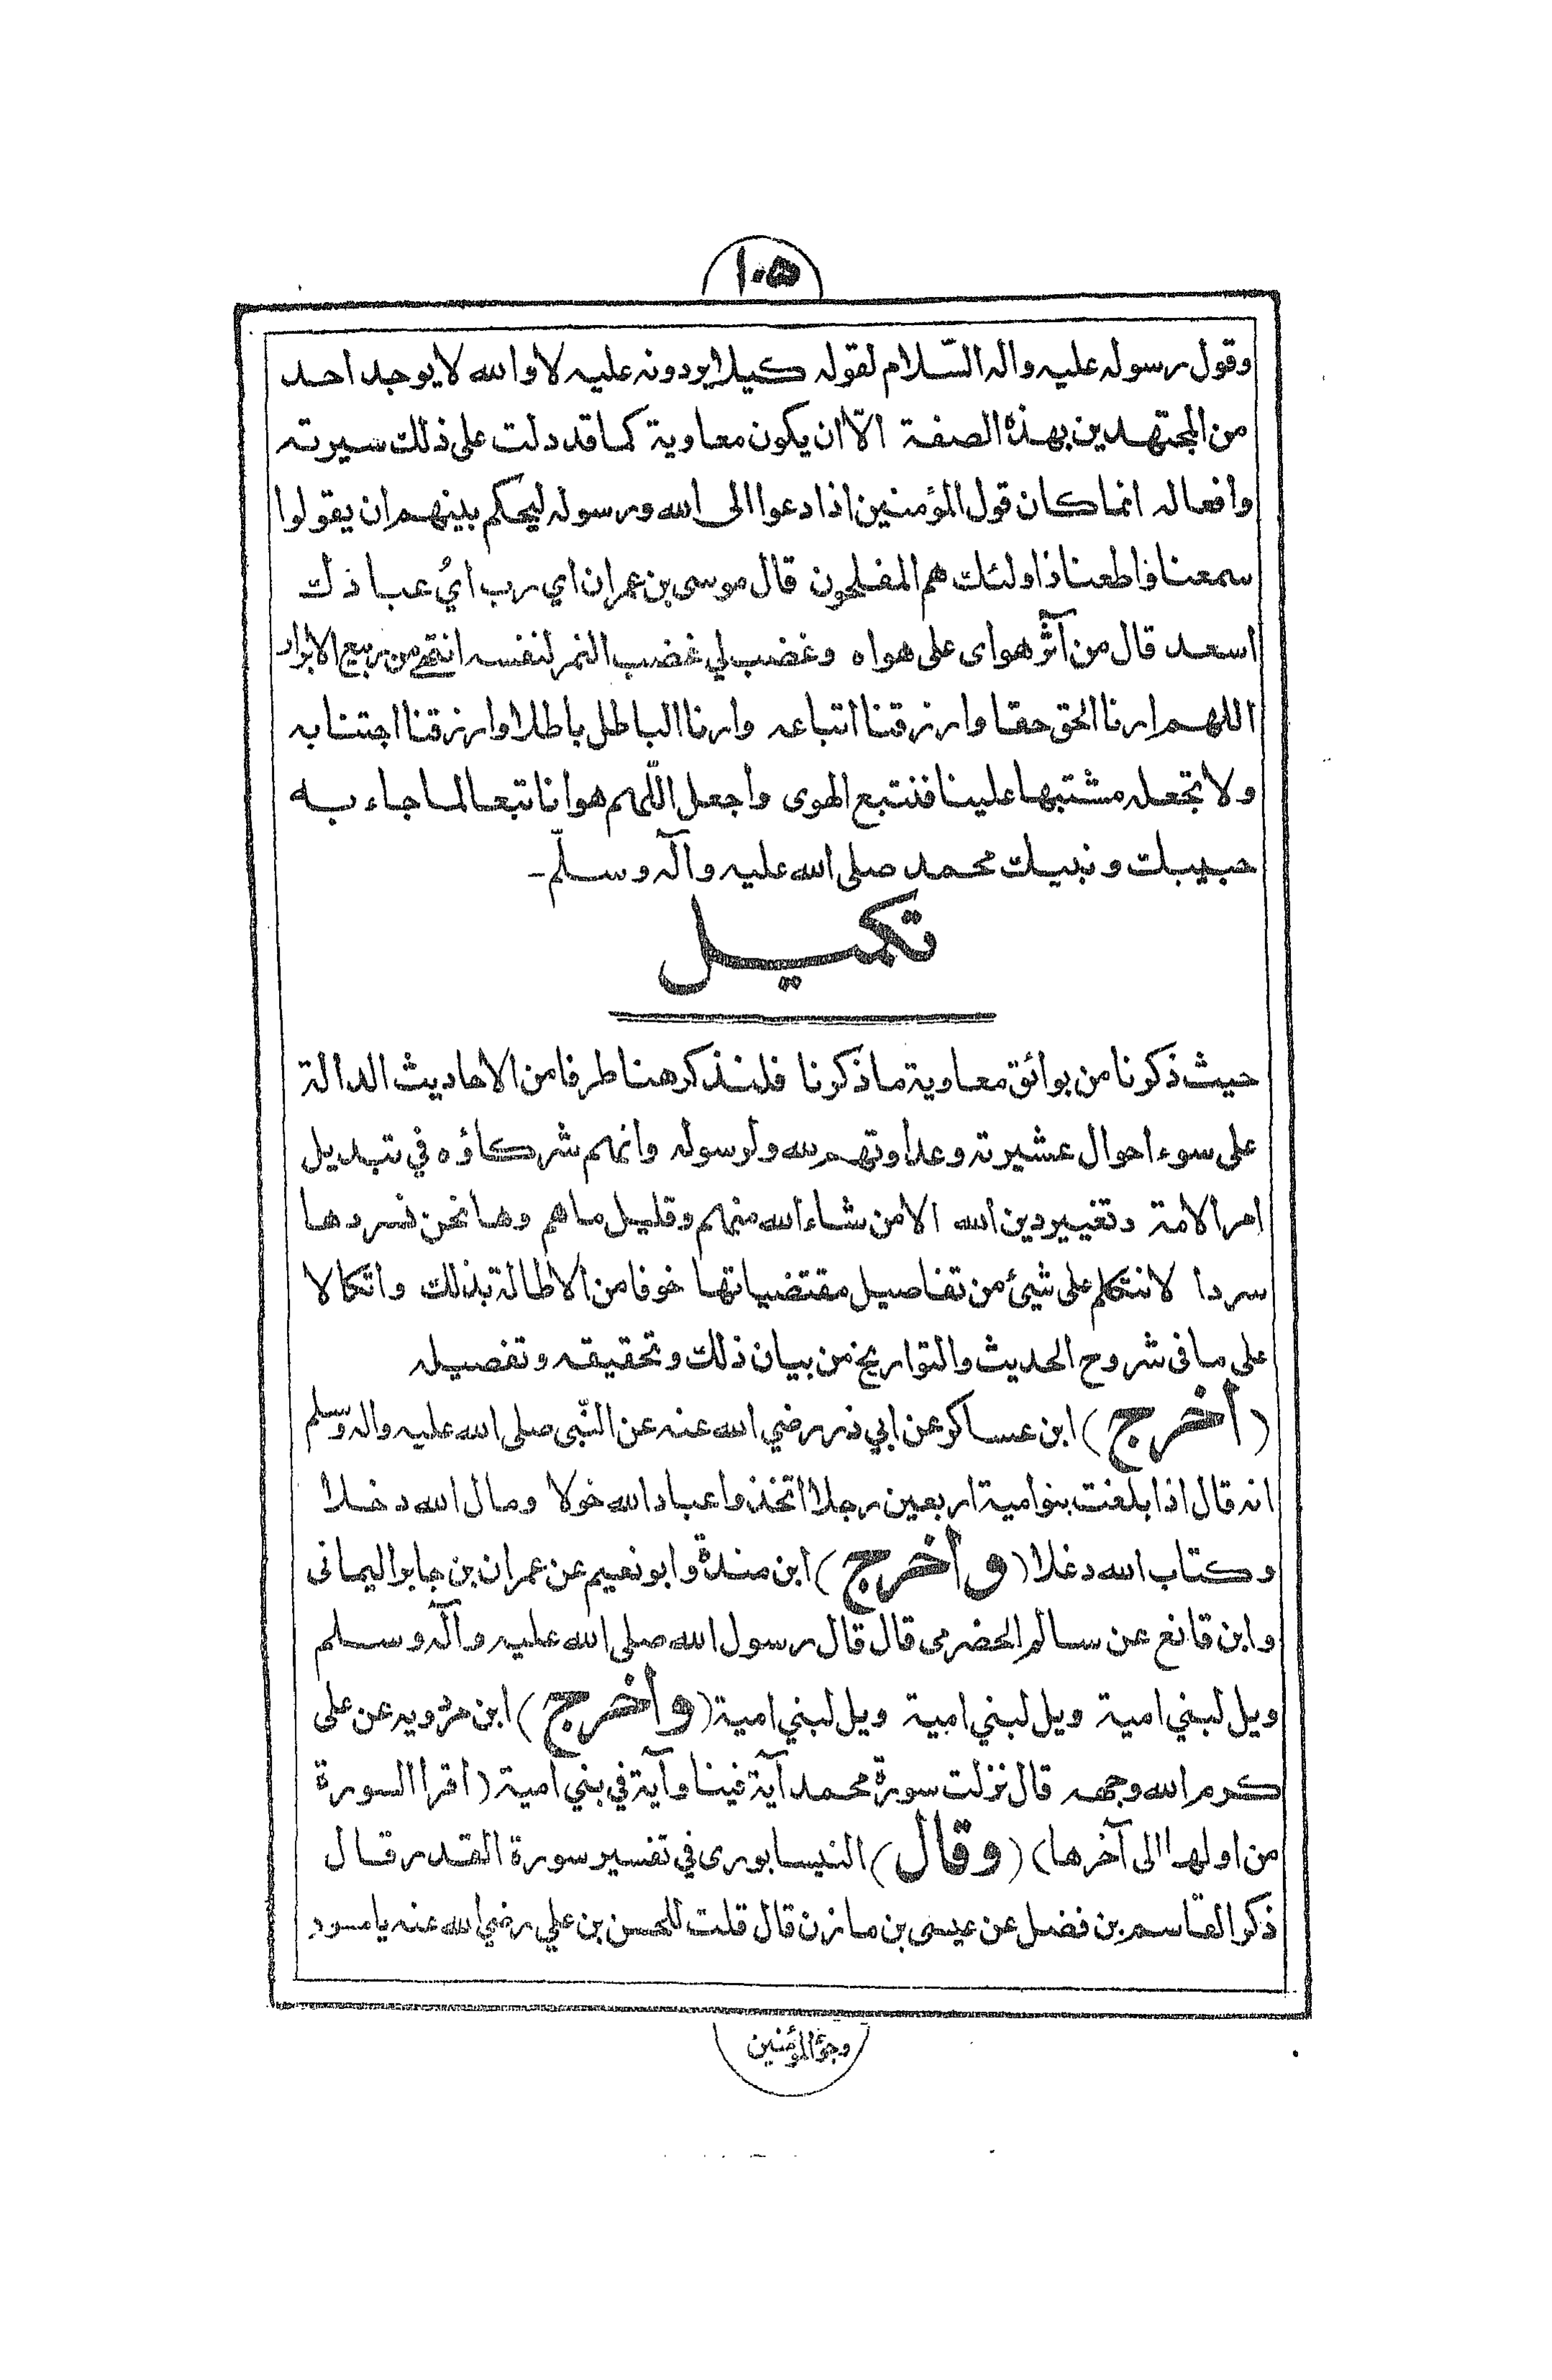 ١٠٥
وقول رسوله عليه واله السّلام لقوله كيلا يردونه عليه لا والله لا يوجد احد
من المجتهدين بهذه الصفة الّا ان يكون معاوية كما قد دلت على ذلك سيرته
وافعاله انما كان قول المؤمنين اذا دعوا الى الله ورسوله ليحكم بينهم ان يقولوا
سمعنا واطعنا ذاولئك هم المفلحون قال موسى بن عمران اي رب ايُ عبادك
اسعد قال من آثر هواى على هواه وغضب لي غضب النمر لنفسه انتهى من ربيع الابرار
اللهم ارنا الحق حقا وارزقنا اتباعه وارنا الباطل باطلا وارزقنا اجتنابه
ولا تجعله مشتبها علينا فنتبع الهوى واجعل اللّهم هوانا تبعا لما جاء به
حبيبك ونبيك محمد صلى الله عليه وآله وسلّم-
تكميل
حيث ذكرنا من بوائق معاوية ما ذكرنا فلنذكر هنا طرفا من الاحاديث الدالة
على سوء احوال عشيرته وعداوتهم لله ولرسوله وانهم شركاؤه في تبديل
امر الامة وتغيير دين الله الا من شاء الله منهم وقليل ما هم وها نحن نسردها
سردا لا نتكلم على شيئ من تفاصيل مقتضياتها خوفا من الاطالة بذلك واتكالا
على ما فى شروح الحديث والتواريخ من بيان ذلك وتحقيقه وتفصيله
(أخرج) ابن عساكر عن ابي ذر رضي الله عنه عن النّبى صلى الله عليه واله وسلم
انه قال اذا بلغت بنو امية اربعين رجلا اتخذوا عباد الله خولا ومال الله دخلا
وكتاب الله دغلا (وأخرج) ابن مندة وابو نعيم عن عمران بن جابر اليمانى
وابن قانع عن سالم الحضرمى قال قال رسول الله صلى الله عليه وآله وسلم
ويل لبني امية ويل لبني امية ويل لبني امية (وأخرج) ابن مردويه عن على
كرم الله وجهه قال نزلت سورة محمد آية فينا وآية في بني امية (اقرا السورة
من اولها الى آخرها) (وقال) النيسابورى في تفسير سورة القدر قال
ذكر القاسم بن فضل عن عيسى بن مازن قال قلت للحسن بن علي رضي الله عنه يا مسود
وجوه المؤمنين